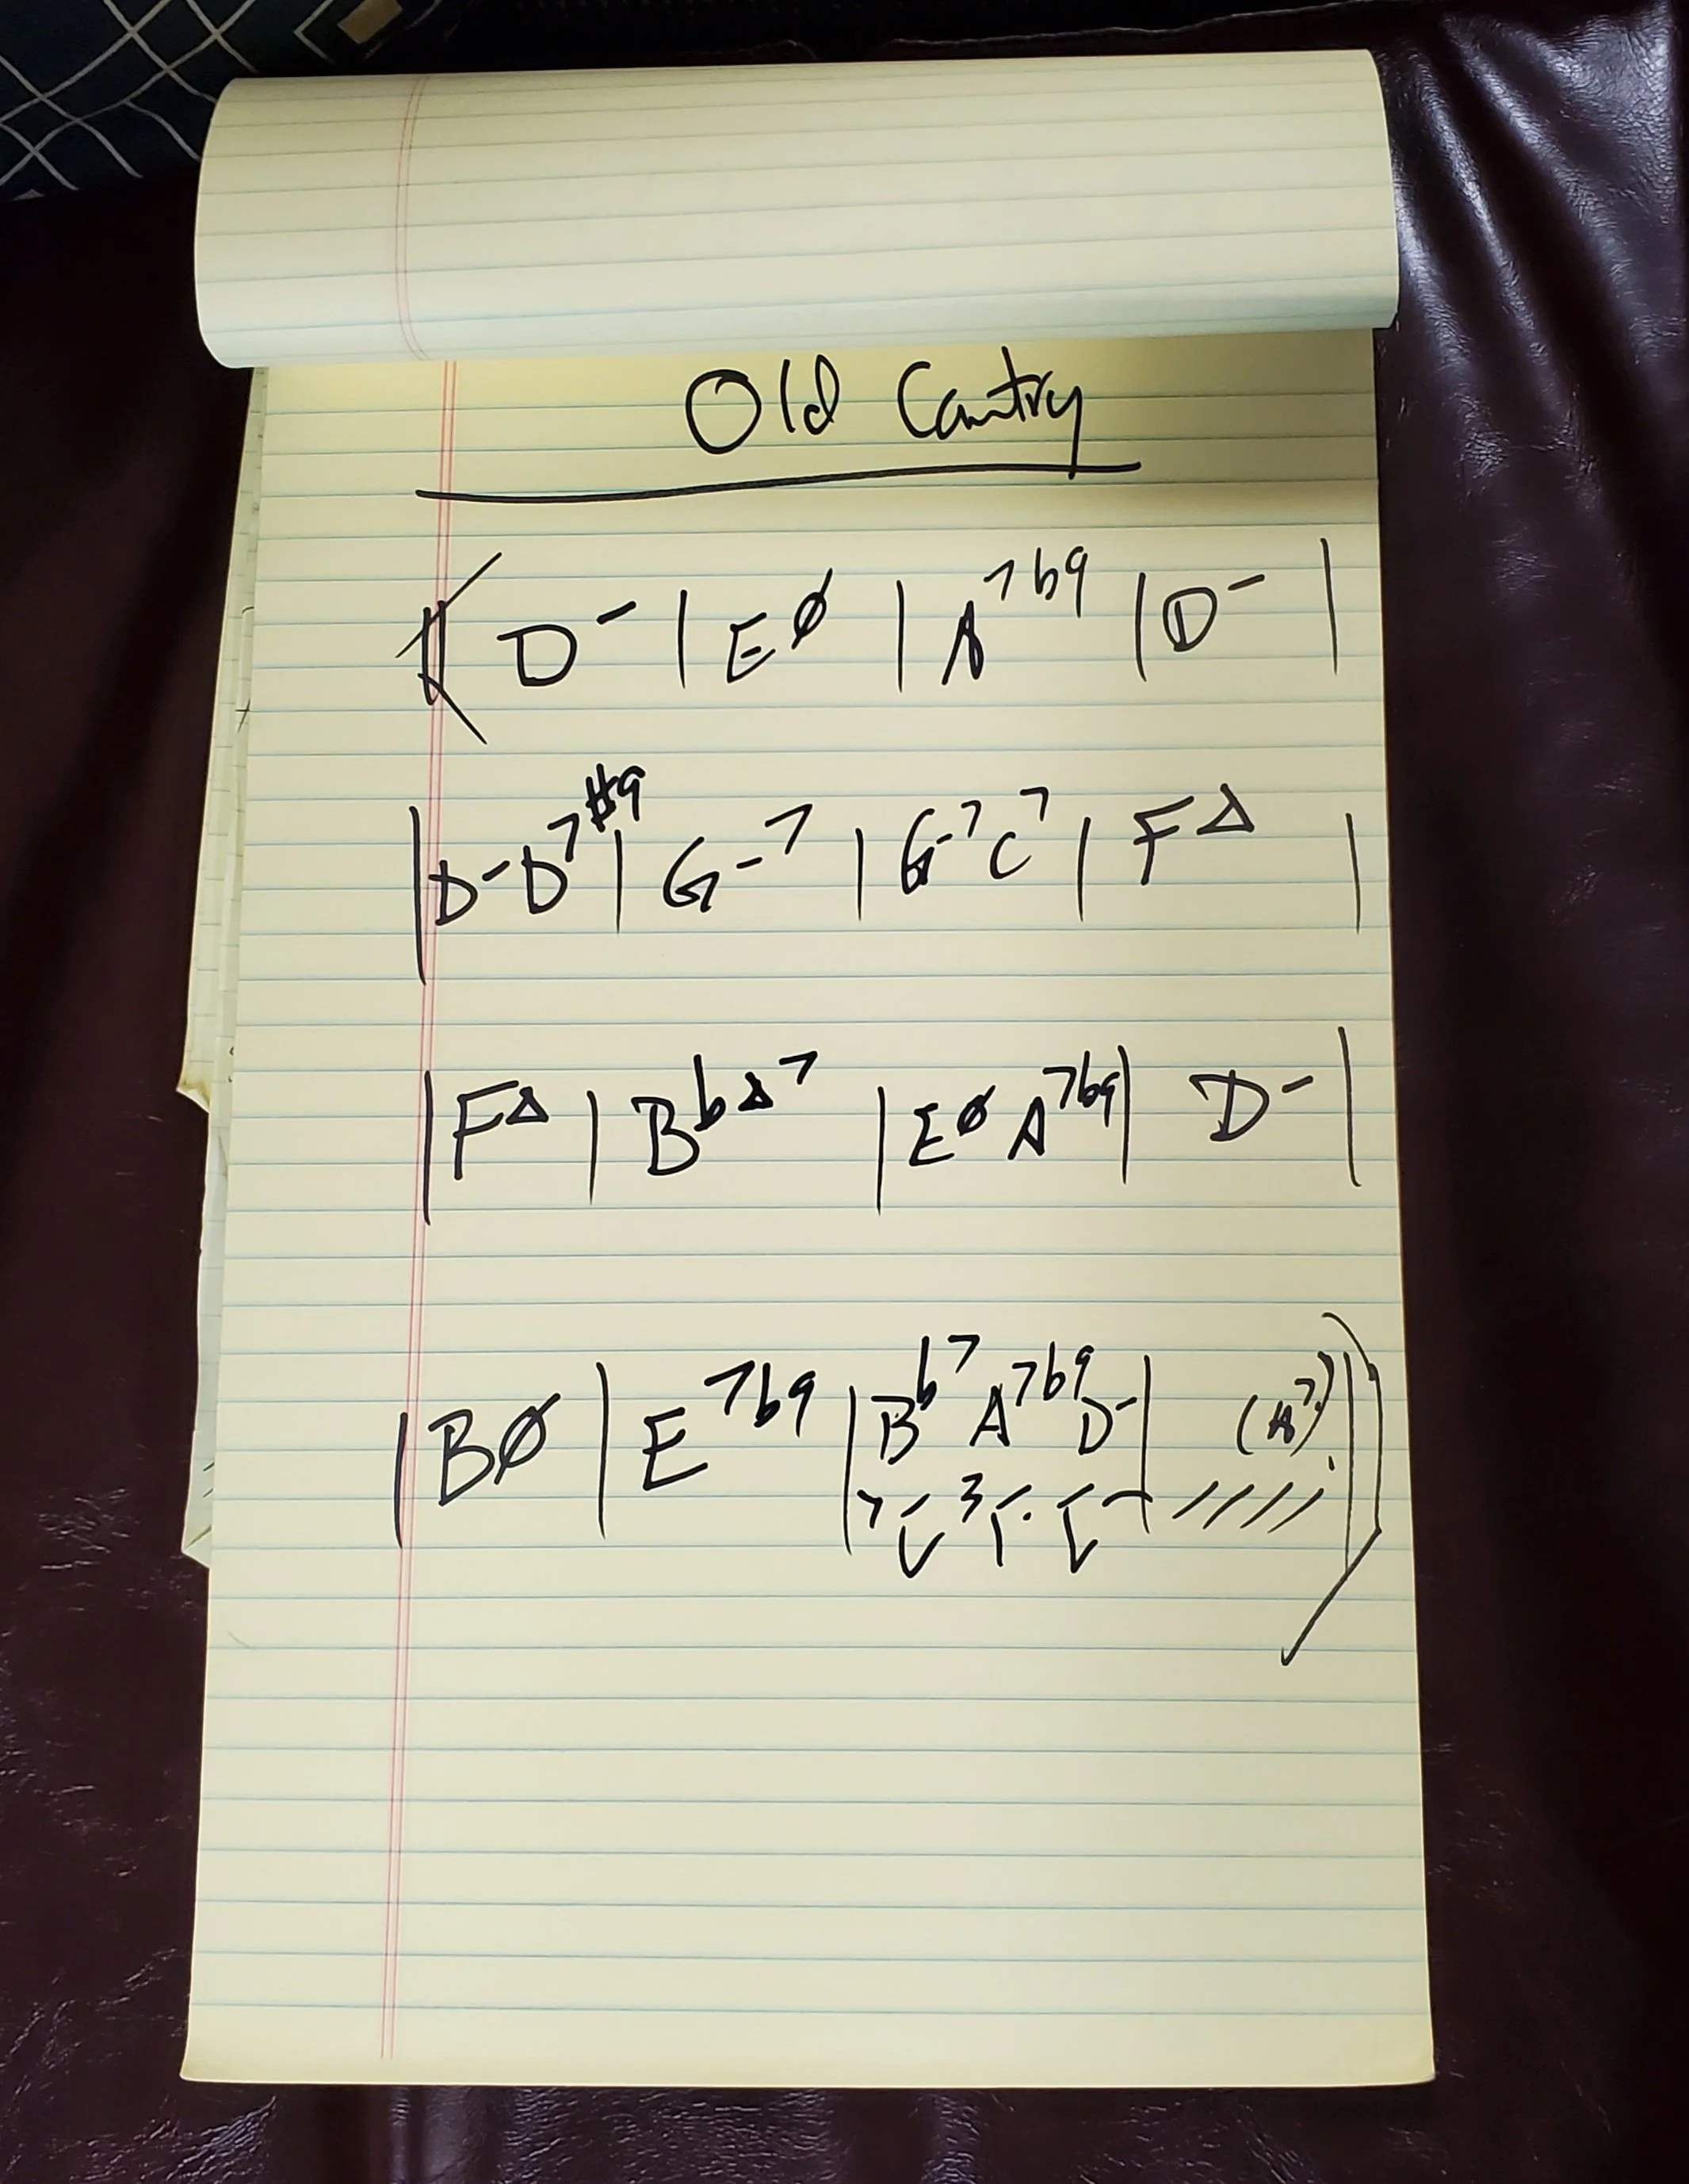 Old Country
D- | Eø | A7b9 | D- |
| D- D7#9 | G-7 | G-7 C7 | FΔ |
| FΔ | BbΔ7 | Eø A7b9 | D- |
| Bø | E7b9 | Bb7 A7b9 D- | (A7) ||
////